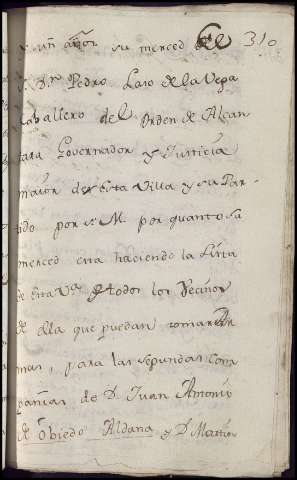 310
y un años su merced el
S. Dn Pedro Laso de la Vega
Caballero del Orden de Alcan
tara Governador y Justicia
maior de esta Villa y su Par-
tido por s. M. por quanto su
merced esta haciendo la Lista
de esta Va. y todos los Vecinos
de ella que puedan tomar Ar
mas, para las segundas Com
pañias de D. Juan Antonio
de Obiedo Aldana y D. Martin